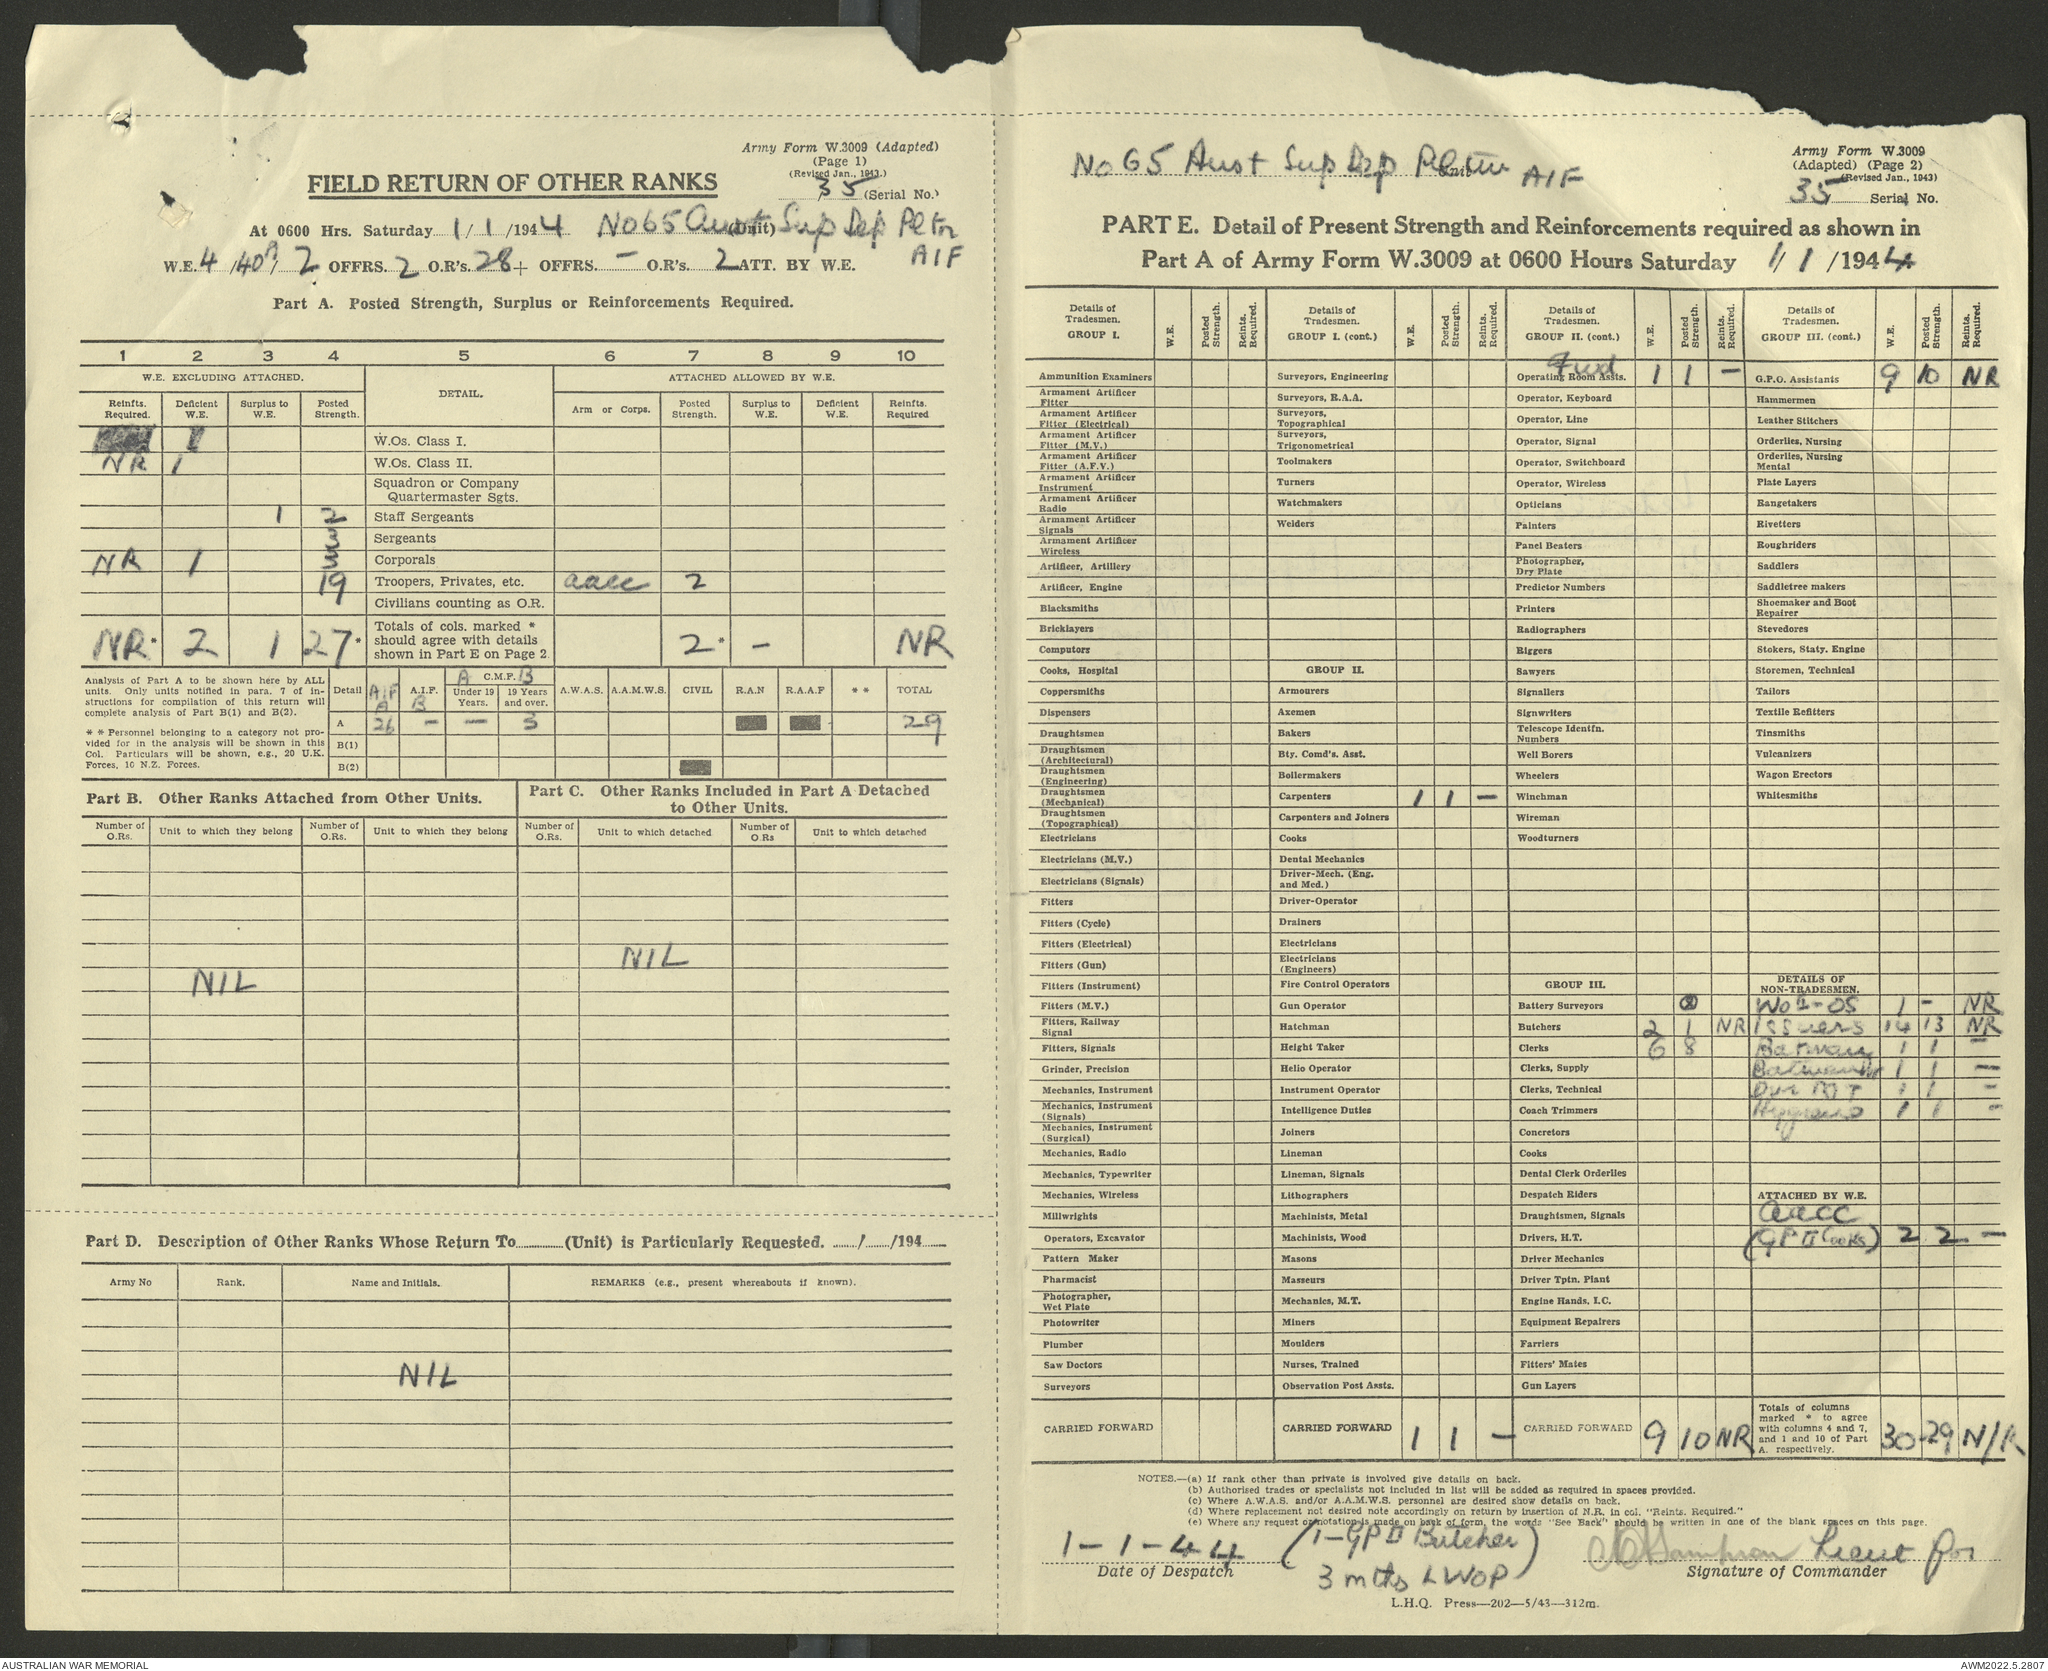 Army Form W.3009 (Adapted)
(Page 1)
(Revised Jan., 1943.)
FIELD RETURN OF OTHER RANKS
35 (Serial No.)
At 0600 Hrs. Saturday 1/1/1944 No 65 Aust Sup Dep Pltn (Unit)
AIF
W.E. 4/40A/2 OFFRS. 2 O.R's. 28 + OFFRS. – O.R's. 2 ATT. BY W.E.
Part A. Posted Strength, Surplus or Reinforcements Required.
1 2 3 4 5 6 7 8 9 10
W.E. EXCLUDING ATTACHED. DETAIL. ATTACHED ALLOWED BY W.E.
Reinfts. Required. Deficient W.E. Surplus to W.E. Posted Strength. Arm or Corps. Posted Strength. Surplus to W.E. Deficient W.E. Reinfts. Required
W.Os. Class I.
NR 1 W.Os. Class II.
Squadron or Company
Quartermaster Sgts.
1 Staff Sergeants
Sergeants
NR 1 Corporals
19 Troopers, Privates, etc. aacc 2
Civilians counting as O.R.
NR* 2 1 27* Totals of cols. marked * should agree with details shown in Part E on Page 2. 2* – NR
Analysis of Part A to be shown here by ALL units. Only units notified in para. 7 of instructions for compilation of this return will complete analysis of Part B(1) and B(2).
** Personnel belonging to a category not provided for in the analysis will be shown in this Col. Particulars will be shown, e.g., 20 U.K. Forces, 10 N.Z. Forces.
Detail AIF A A.I.F. B A C.M.F. B Under 19 Years. 19 Years and over. A.W.A.S. A.A.M.W.S. CIVIL R.A.N R.A.A.F ** TOTAL
A 26 – – 3 29
B(1)
B(2)
Part B. Other Ranks Attached from Other Units.
Number of O.Rs. Unit to which they belong Number of O.Rs. Unit to which they belong
NIL
Part C. Other Ranks Included in Part A Detached to Other Units.
Number of O.Rs. Unit to which detached Number of O.Rs Unit to which detached
NIL
Part D. Description of Other Ranks Whose Return To (Unit) is Particularly Requested. / /194
Army No Rank. Name and Initials. REMARKS (e.g., present whereabouts if known).
NIL
No 65 Aust Sup Dep Pltn Unit AIF
Army Form W.3009
(Adapted) (Page 2)
(Revised Jan., 1943)
35 Serial No.
PART E. Detail of Present Strength and Reinforcements required as shown in
Part A of Army Form W.3009 at 0600 Hours Saturday 1/1/1944
Details of Tradesmen. GROUP I. W.E. Posted Strength. Reinfts. Required.
Ammunition Examiners
Armament Artificer Fitter
Armament Artificer Fitter (Electrical)
Armament Artificer Fitter (M.V.)
Armament Artificer Fitter (A.F.V.)
Armament Artificer Instrument
Armament Artificer Radio
Armament Artificer Signals
Armament Artificer Wireless
Artificer, Artillery
Artificer, Engine
Blacksmiths
Bricklayers
Computors
Cooks, Hospital
Coppersmiths
Dispensers
Draughtsmen
Draughtsmen (Architectural)
Draughtsmen (Engineering)
Draughtsmen (Mechanical)
Draughtsmen (Topographical)
Electricians
Electricians (M.V.)
Electricians (Signals)
Fitters
Fitters (Cycle)
Fitters (Electrical)
Fitters (Gun)
Fitters (Instrument)
Fitters (M.V.)
Fitters, Railway Signal
Fitters, Signals
Grinder, Precision
Mechanics, Instrument
Mechanics, Instrument (Signals)
Mechanics, Instrument (Surgical)
Mechanics, Radio
Mechanics, Typewriter
Mechanics, Wireless
Millwrights
Operators, Excavator
Pattern Maker
Pharmacist
Photographer, Wet Plate
Photowriter
Plumber
Saw Doctors
Surveyors
CARRIED FORWARD
Details of Tradesmen. GROUP I. (cont.) W.E. Posted Strength. Reinfts. Required.
Surveyors, Engineering
Surveyors, R.A.A.
Surveyors, Topographical
Surveyors, Trigonometrical
Toolmakers
Turners
Watchmakers
Welders
GROUP II.
Armourers
Axemen
Bakers
Bty. Comd's. Asst.
Boilermakers
Carpenters 1 1 –
Carpenters and Joiners
Cooks
Dental Mechanics
Driver-Mech. (Eng. and Med.)
Driver-Operator
Drainers
Electricians
Electricians (Engineers)
Fire Control Operators
Gun Operator
Hatchman
Height Taker
Helio Operator
Instrument Operator
Intelligence Duties
Joiners
Lineman
Lineman, Signals
Lithographers
Machinists, Metal
Machinists, Wood
Masons
Masseurs
Mechanics, M.T.
Miners
Moulders
Nurses, Trained
Observation Post Assts.
CARRIED FORWARD 1 1 –
Details of Tradesmen. GROUP II. (cont.) W.E. Posted Strength. Reinfts. Required.
Fwd
Operating Room Assts. 1 1 –
Operator, Keyboard
Operator, Line
Operator, Signal
Operator, Switchboard
Operator, Wireless
Opticians
Painters
Panel Beaters
Photographer, Dry Plate
Predictor Numbers
Printers
Radiographers
Riggers
Sawyers
Signallers
Signwriters
Telescope Identfn. Numbers
Well Borers
Wheelers
Winchman
Wireman
Woodturners
GROUP III.
Battery Surveyors
Butchers 2 1 NR
Clerks 6 8
Clerks, Supply
Clerks, Technical
Coach Trimmers
Concretors
Cooks
Dental Clerk Orderlies
Despatch Riders
Draughtsmen, Signals
Drivers, H.T.
Driver Mechanics
Driver Tptn. Plant
Engine Hands, I.C.
Equipment Repairers
Farriers
Fitters' Mates
Gun Layers
CARRIED FORWARD 9 10 NR
Details of Tradesmen. GROUP III. (cont.) W.E. Posted Strength. Reinfts. Required.
G.P.O. Assistants 9 10 NR
Hammermen
Leather Stitchers
Orderlies, Nursing
Orderlies, Nursing Mental
Plate Layers
Rangetakers
Rivetters
Roughriders
Saddlers
Saddletree makers
Shoemaker and Boot Repairer
Stevedores
Stokers, Staty. Engine
Storemen, Technical
Tailors
Textile Refitters
Tinsmiths
Vulcanizers
Wagon Erectors
Whitesmiths
DETAILS OF NON-TRADESMEN.
1 – NR
Issuers 14 13 NR
Batman 1 1 –
1 1 –
Dvr MT 1 1 –
Hygiene 1 1 –
ATTACHED BY W.E.
aacc
(GP II Cooks) 2 2 –
Totals of columns marked * to agree with columns 4 and 7, and 1 and 10 of Part A. respectively. 30 29 N/R
NOTES.—(a) If rank other than private is involved give details on back.
(b) Authorised trades or specialists not included in list will be added as required in spaces provided.
(c) Where A.W.A.S. and/or A.A.M.W.S. personnel are desired show details on back.
(d) Where replacement not desired note accordingly on return by insertion of N.R. in col. "Reints. Required."
(e) Where any request or notation is made on back of form, the words "See Back" should be written in one of the blank spaces on this page.
1-1-44 (1-GP II Butcher) Lieut for
Date of Despatch 3 mths LWOP Signature of Commander
L.H.Q. Press—202—5/43—312m.
AUSTRALIAN WAR MEMORIAL AWM2022.5.2807